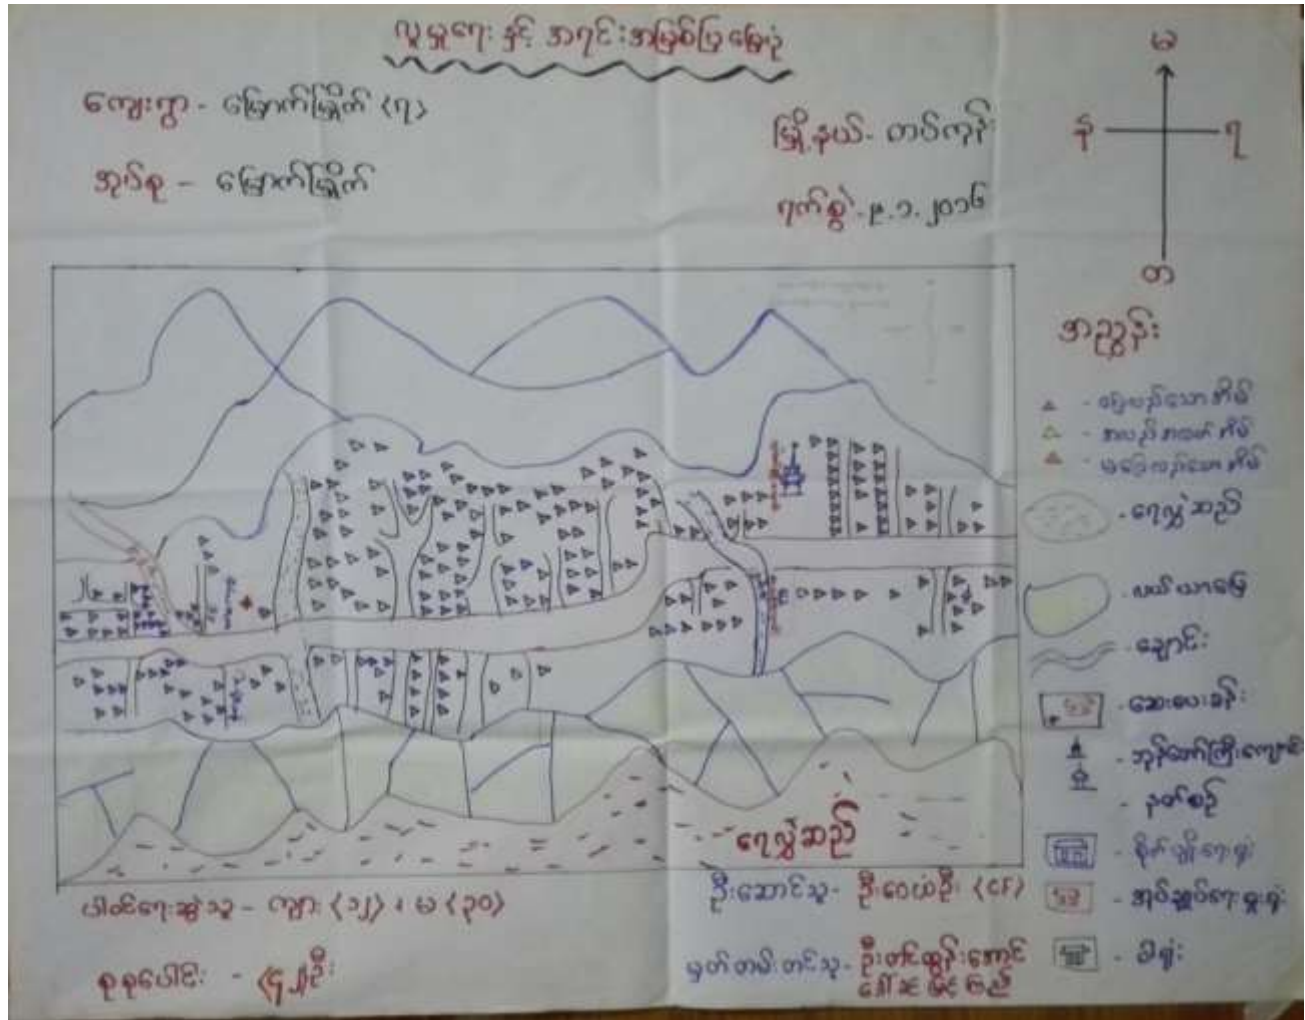 လူမှုရေး နှင့် အရင်းအမြစ်ပြမြေပုံ
ကျေးရွာ - မြောက်မြိုက် (၇)
အုပ်စု - မြောက်မြိုက်
မြို့နယ် - တပ်ကုန်း
ရက်စွဲ - ၉.၁.၂၀၁၆
မ
န
ရ
တ
အညွှန်း
- ပြေလည်သောအိမ်
- အလည်အလတ်အိမ်
- မပြေလည်သောအိမ်
- ရေလွှဲဆည်
- လယ်ယာမြေ
- ချောင်း
- ဆေးပေးခန်း
- ဘုန်းတော်ကြီးကျောင်း
- နတ်စင်
- စိုက်ပျိုးရေးရုံး
- အုပ်ချုပ်ရေးမှူးရုံး
ရေလွှဲဆည်
ပါဝင်ရေးဆွဲသူ - ကျား (၁၂) ၊ မ (၃၀)
စုစုပေါင်း - (၄၂)ဦး
ဦးဆောင်သူ - ဦးဝေယံဦး
မှတ်တမ်းတင်သူ - ဦးတင်ထွန်းအောင်